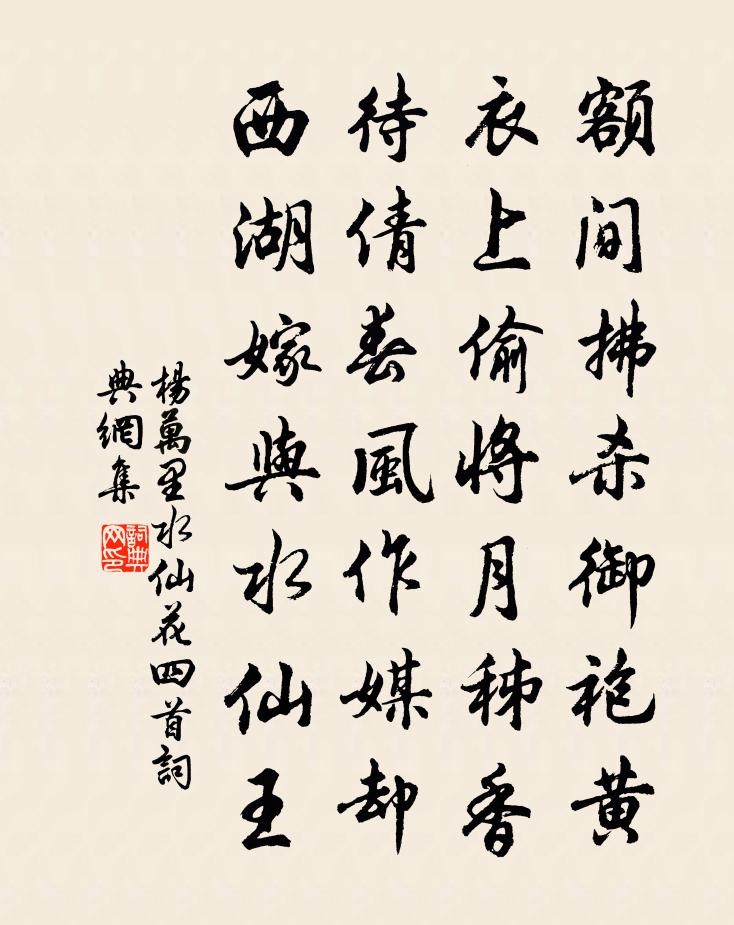 額間拂殺御袍黃
衣上偷將月秭香
待倩春風作媒却
西湖嫁與水仙王
楊萬里水仙花四首詞
典網集
詞典
网印